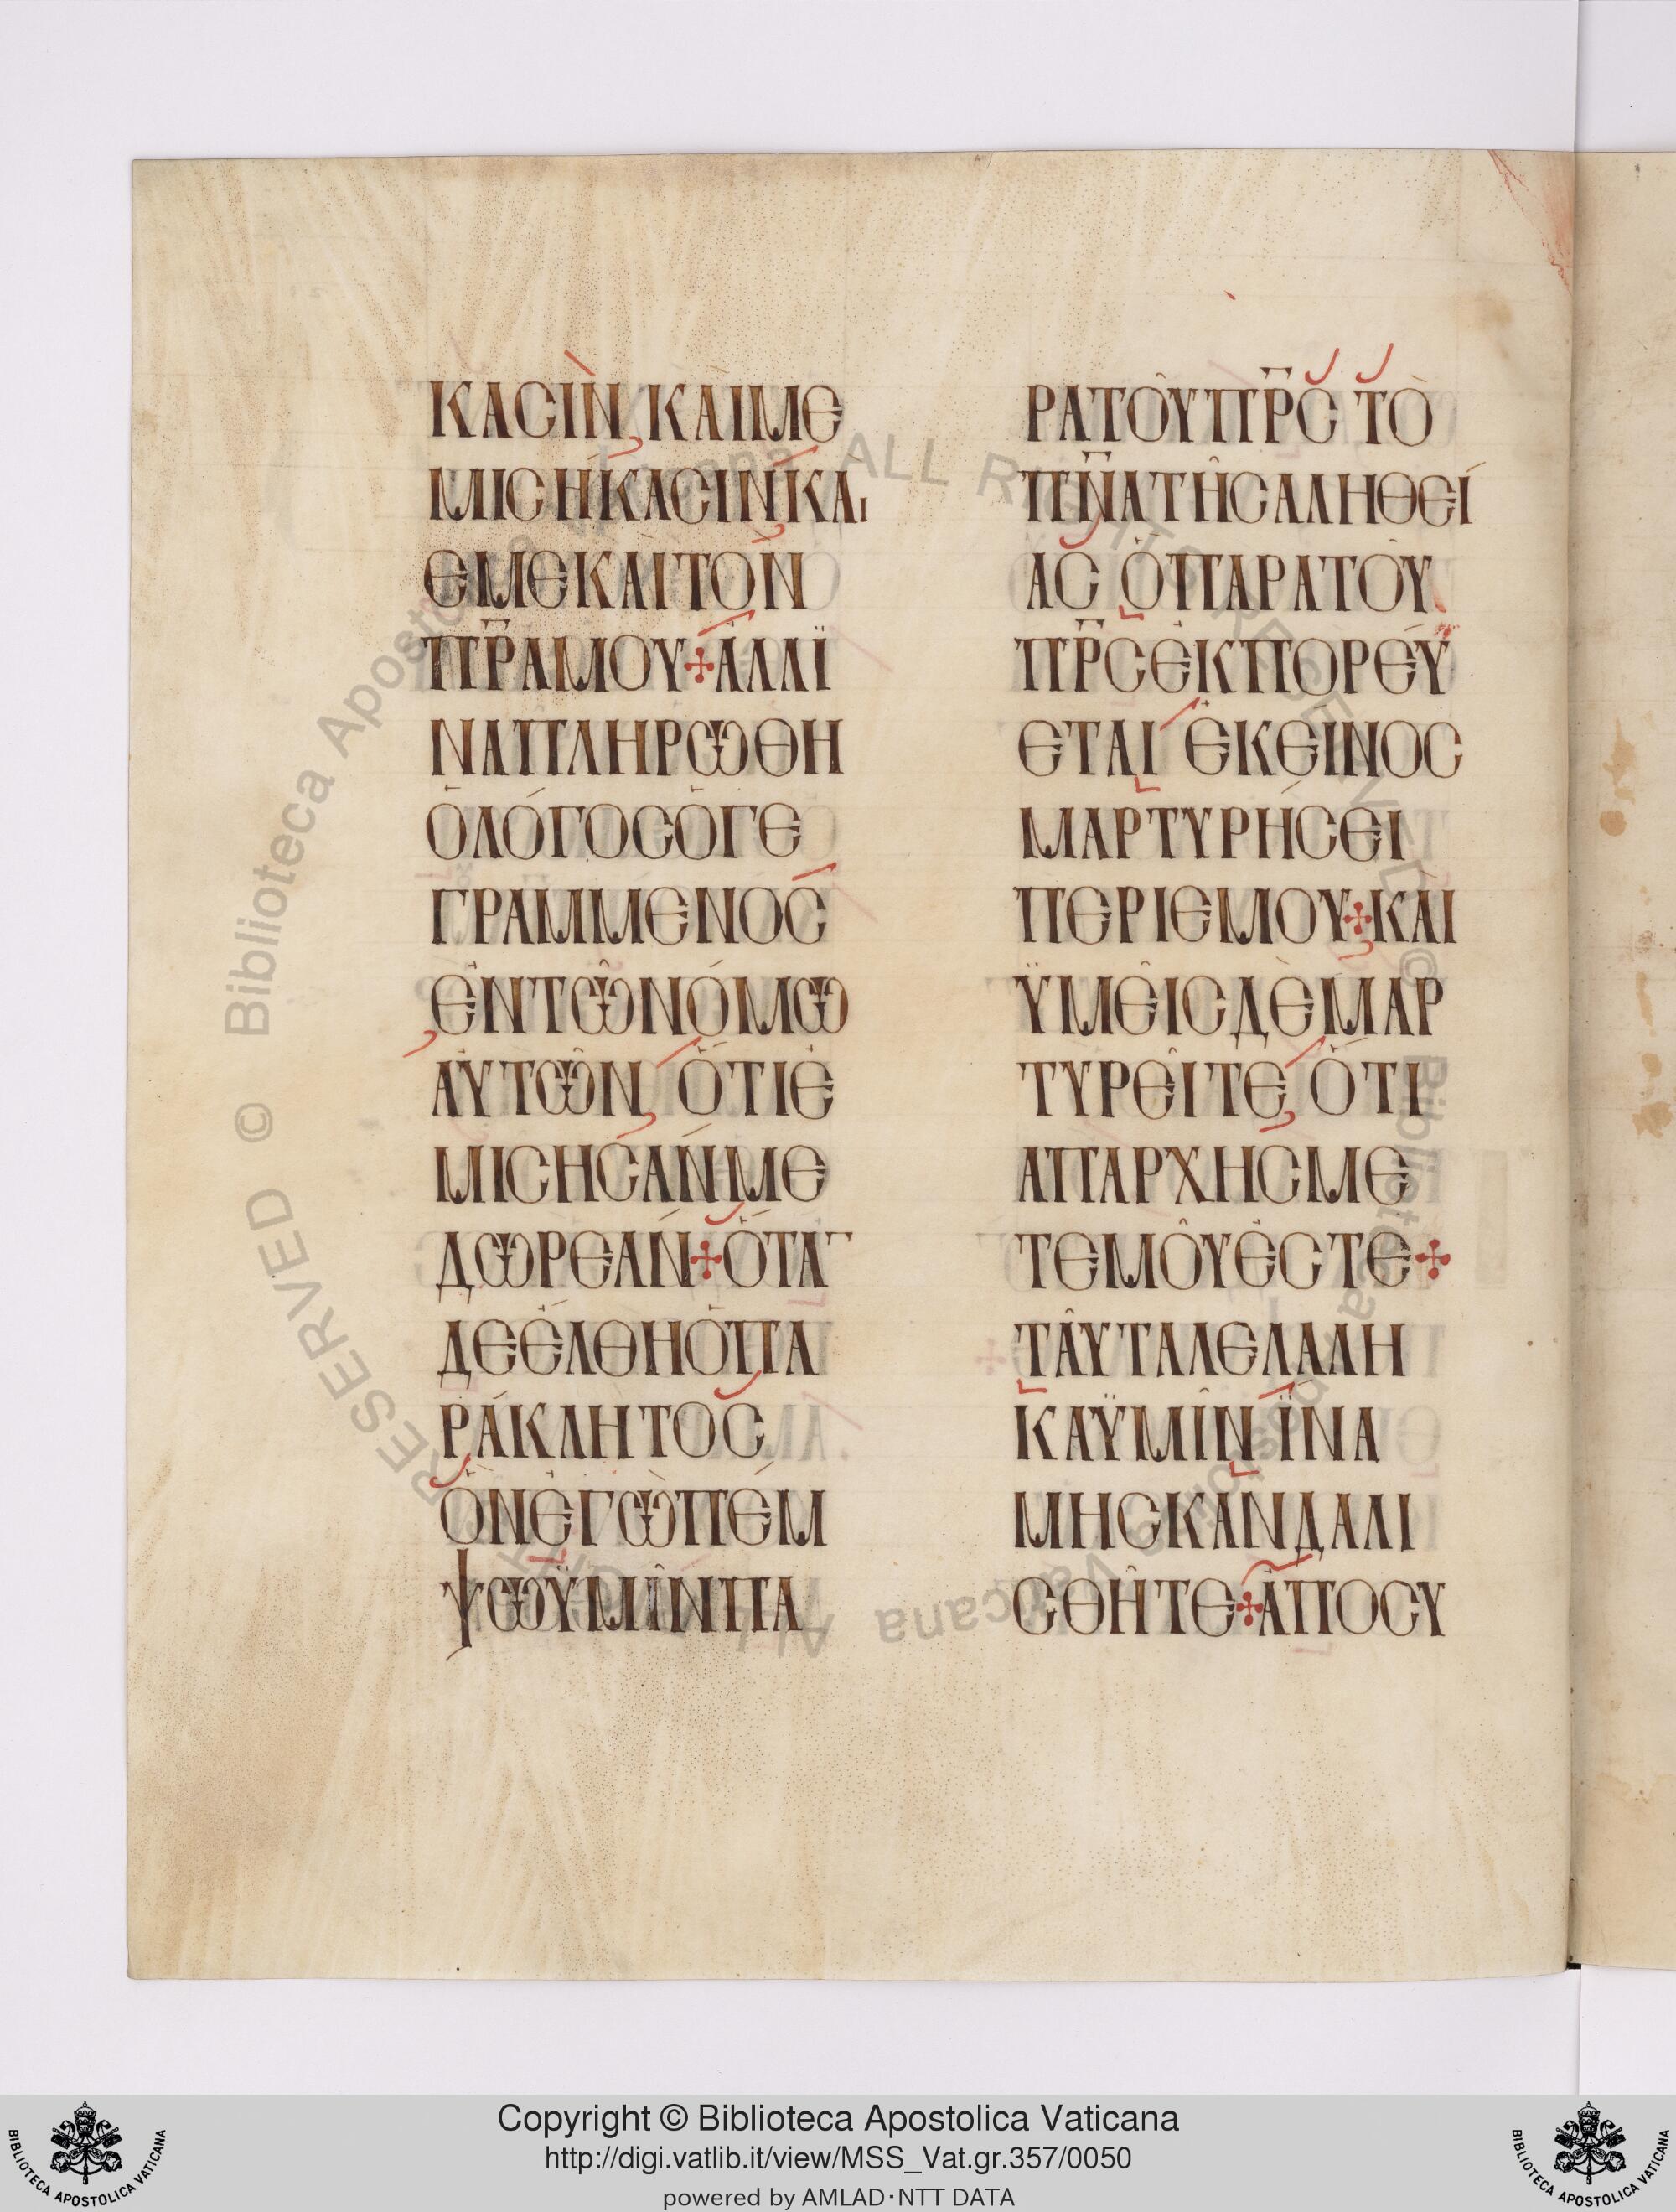 ΚΑCῚΝ, ΚΑῚΜΕ
ΜΙCΉΚΑCΙΝΚΑΙ
ΕΜΕΚΑῚΤΟΝ
ΠΡ̅ΑΜΟΥ⁘ἈΛΛΪ
ΝΑΠΛΗΡΩΘΗ
ὉΛΌΓΟCὉΓΕ
ΓΡΑΜΜΕΝΟC
ἘΝΤΩ͂ΝΌΜΩ
ΑΥ̓ΤΩ͂Ν, ὍΤΙἘ
ΜΙCΗCΆΝΜΕ
ΔΩΡΕΆΝ⁘ὍΤΑ¯
ΔΕἜΛΘΗὉΠΑ
ΡΆΚΛΗΤΟC
ὋΝἘΓῺΠΈΜ
ΨΩΫΜΙ͂ΝΠΑ
ΡΑΤΟΥ͂ΠΡ̅C ΤῸ
ΠΝ̅ΑΤΗ͂CΑΛΗΘΕΊ
ΑC ὉΠΑΡΑΤΟΥ͂
ΠΡ̅CἘΚΠΟΡΕΎ
ΕΤΑΙ ἘΚΕΙΝΟC
ΜΑΡΤΥΡΉCΕΙ
ΠΕΡΙΕΜΟΥ⁘ΚΑῚ
ΫΜΕΙ͂CΔῈΜΑΡ
ΤΥΡΕΙ͂ΤΕ, ὍΤΙ
ΑΠΑΡΧΗCΜΕ
ΤΕΜΟΥ͂ἘCΤΕ⁘
ΤΑΥ͂ΤΑΛΕΛΑΛΗ
ΚΑΫΜΙ͂Ν ΪΝΑ
ΜΗCΚΑΝΔΑΛΙ
CΘΗ͂ΤΕ⁘ἈΠΟCΥ
© Biblioteca Apostolica Vaticana ALL RIGHTS RESERVED
Copyright © Biblioteca Apostolica Vaticana
http://digi.vatlib.it/view/MSS_Vat.gr.357/0050
powered by AMLAD·NTT DATA
BIBLIOTECA APOSTOLICA VATICANA
BIBLIOTECA APOSTOLICA VATICANA